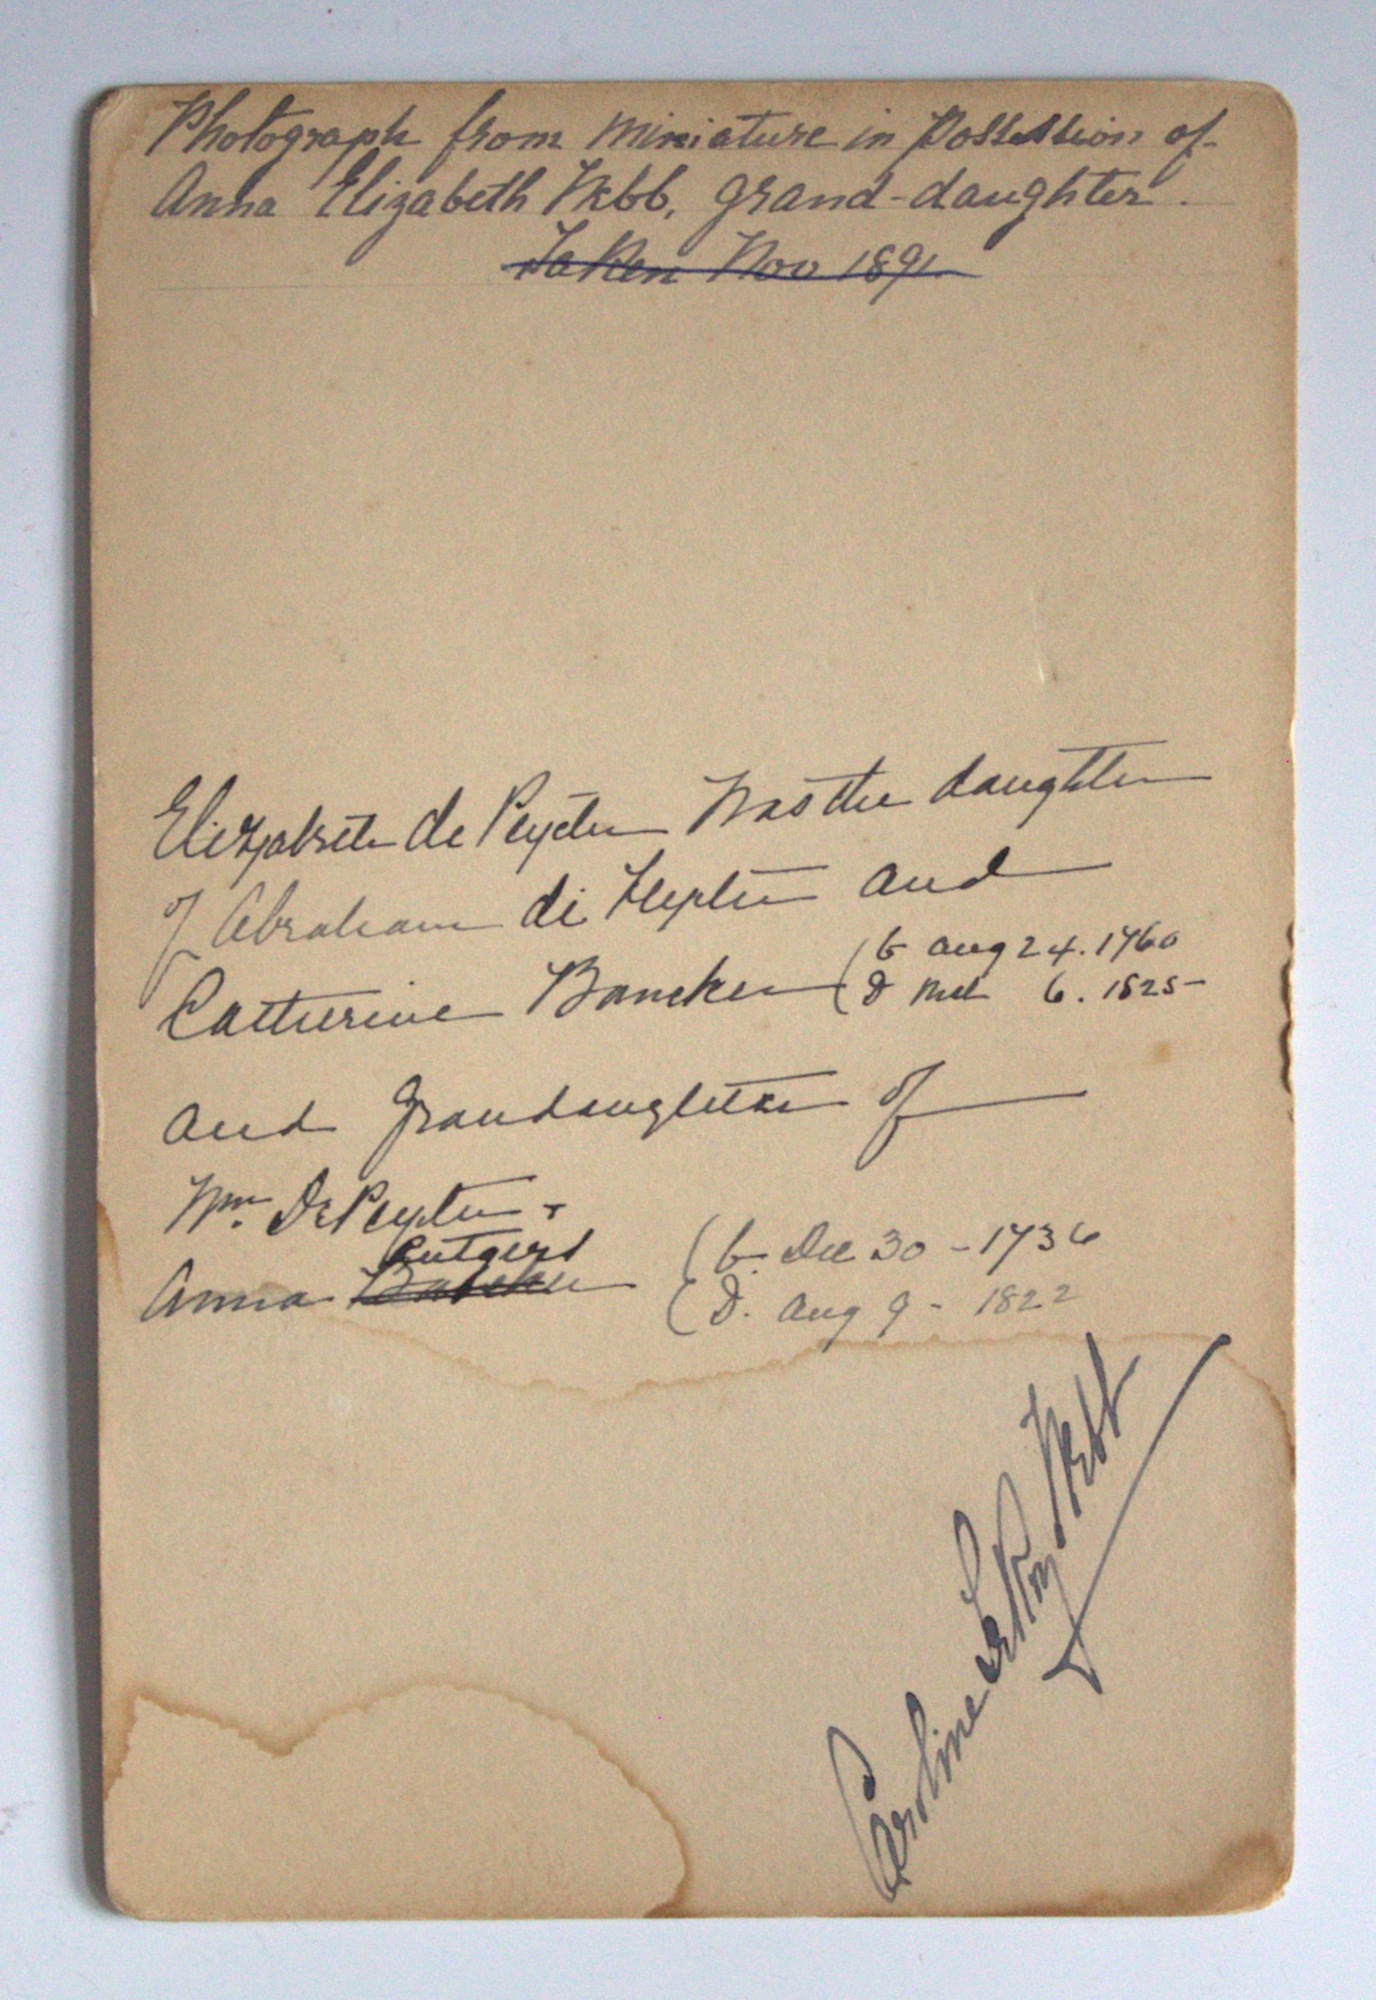 Photograph from Miniature in Possession of
Anna Elizabeth Webb, grand-daughter.
Taken Nov 1891
Elizabeth de Peyster was the daughter
of Abraham de Peyster and
Catherine Bancker (b Aug 24. 1760
(d Mch 6. 1825-
and Grandaughter of
Wm. DePeyster +
Rutgers
Anna Bancker (b. Dec 30 - 1736
(D. Aug 9 - 1822
Caroline LeRoy Webb